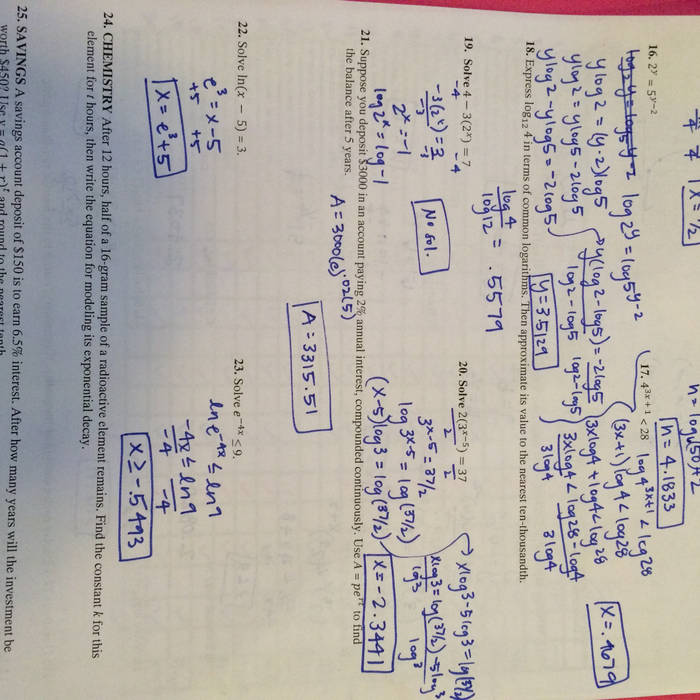 x = 1/2
n = log₆50 + 2
n = 4.1833
16. 2^y = 5^(y−2)
log 2^y = log 5^(y−2)
y log 2 = (y-2) log 5
y log 2 = y log 5 - 2 log 5
y log 2 - y log 5 = -2 log 5
y(log 2 - log 5) = -2 log 5
log 2 - log 5 log 2 - log 5
y = 3.5129
17. 4^(3x + 1) < 28
log 4^(3x+1) < log 28
(3x+1) log 4 < log 28
3x log 4 + log 4 < log 28
3x log 4 < log 28 - log 4
3 log 4 3 log 4
x = .4679
18. Express log₁₂ 4 in terms of common logarithms. Then approximate its value to the nearest ten-thousandth.
log 4
log 12
= .5579
19. Solve 4 − 3(2^x) = 7
-4 -4
-3(2^x) = 3
-3 -3
2^x = -1
log 2^x = log -1
No sol.
20. Solve 2(3^(x−5)) = 37
2 2
3^(x-5) = 37/2
log 3^(x-5) = log (37/2)
(x-5) log 3 = log (37/2)
x log 3 - 5 log 3 = log (37/2)
x log 3 = log (37/2) - 5 log 3
log 3 log 3
x = -2.3441
21. Suppose you deposit $3000 in an account paying 2% annual interest, compounded continuously. Use A = pe^(rt) to find
the balance after 5 years.
A = 3000(e)^.02(5)
A = 3315.51
22. Solve ln(x − 5) = 3.
e³ = x - 5
+5 +5
x = e³ + 5
23. Solve e^(−4x) ≤ 9.
ln e^(-4x) ≤ ln 9
-4x ≤ ln 9
-4 -4
x ≥ -.5493
24. CHEMISTRY After 12 hours, half of a 16-gram sample of a radioactive element remains. Find the constant k for this
element for t hours, then write the equation for modeling is exponential decay.
25. SAVINGS A savings account deposit of $150 is to earn 6.5% interest. After how many years will the investment be
worth $450? Use y = a(1 + r)^t and round to the nearest tenth